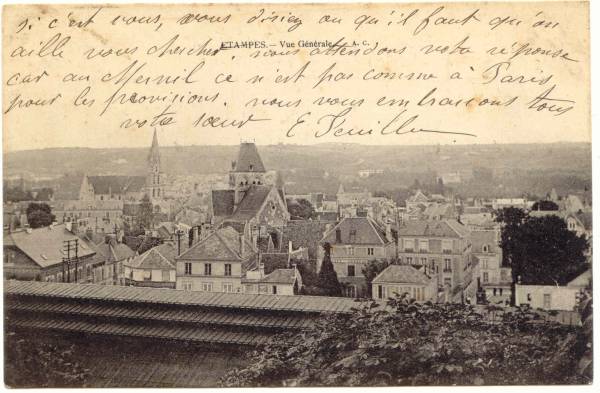 si c'est vous, vous disiez ou qu'il faut qu'on
aille vous chercher. nous attendons votre réponse
ETAMPES. — Vue Générale. A. C.
car au Mesnil ce n'est pas comme à Paris
pour les provisions. nous vous embrassons tous
votre sœur E